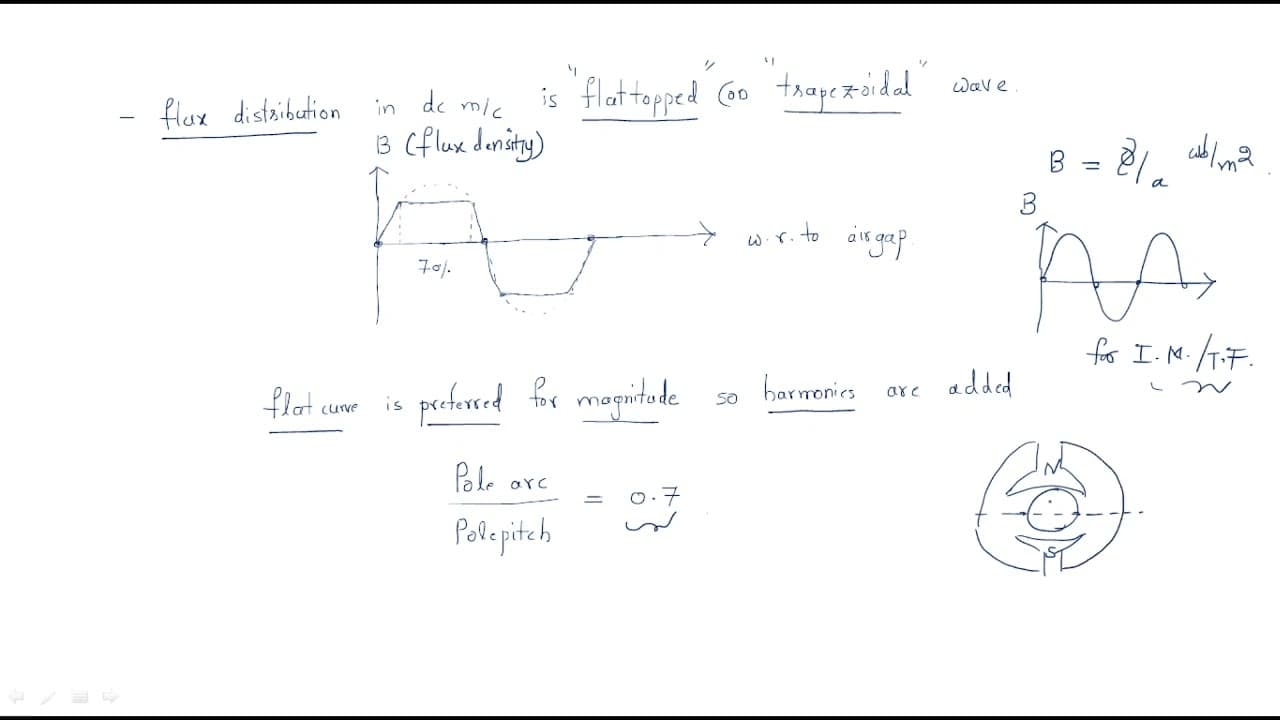 - flux distribution in dc m/c is "flat topped" (or) "trapezoidal" wave.
B (flux density)
B = Φ/a wb/m2
B
w.r.to airgap
70%
for I.M./T.F.
flat curve is preferred for magnitude so harmonics are added
N
Pole arc
= 0.7
Pole pitch
S